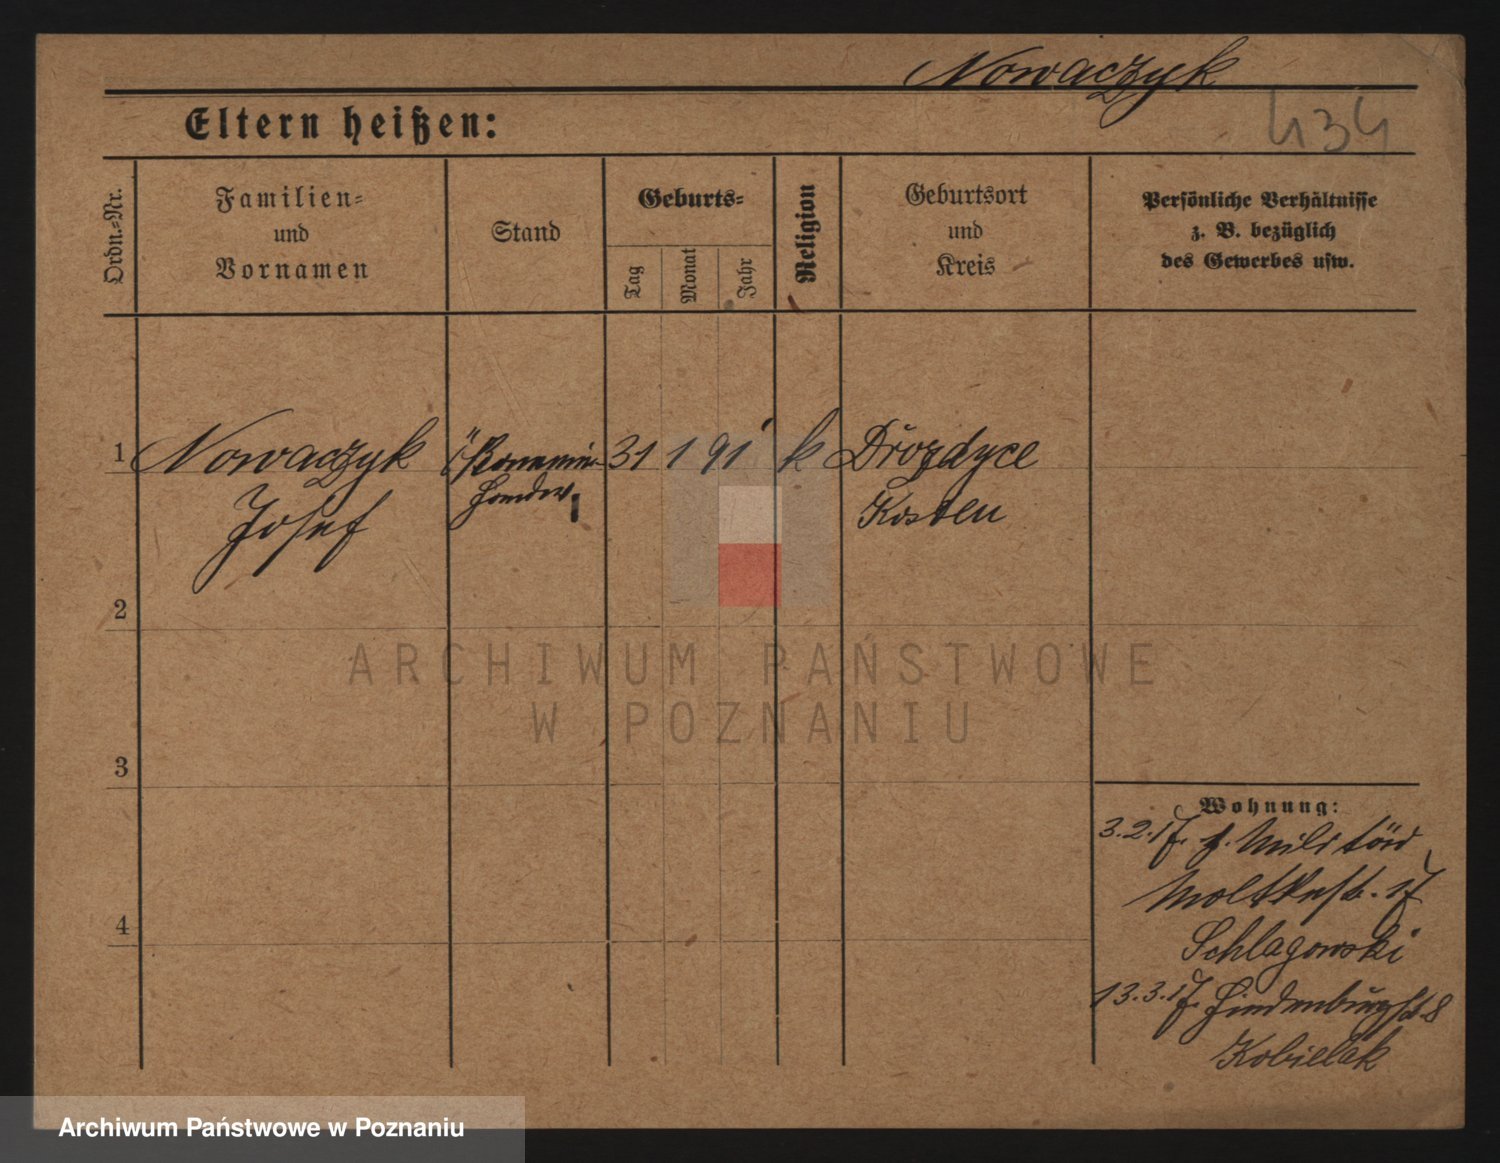 Nowaczyk
Eltern heißen:
434
Ordn.-Nr.
Familien-
und
Vornamen
Stand
Geburts-
Tag
Monat
Jahr
Religion
Geburtsort
und
Kreis
Persönliche Verhältnisse
z. B. bezüglich
des Gewerbes usw.
1 Nowaczyk 31 1 91 k Drozdyce
Josef Kosten
2
3
4
Wohnung:
3.2.17. v. Militär
Moltkestr. 17
Schlagowski
13.3.17. Hindenburgstr. 8
Kobielak
ARCHIWUM PAŃSTWOWE
W POZNANIU
Archiwum Państwowe w Poznaniu